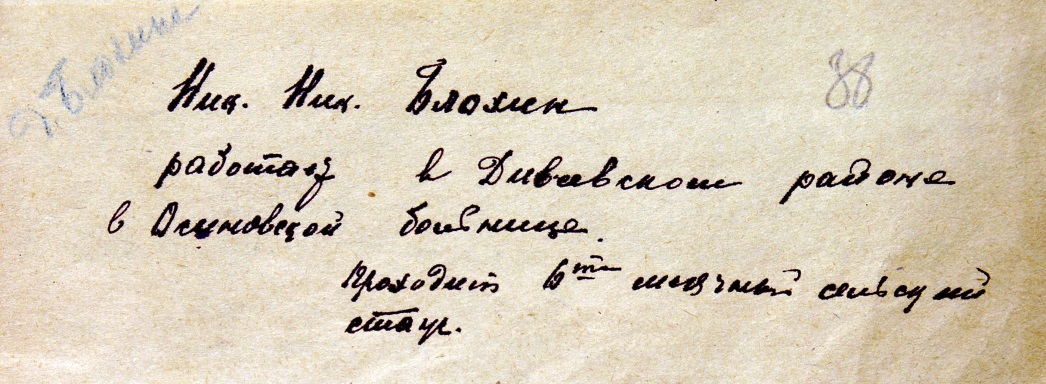 д. Блохина
38
Ник. Ник. Блохин
работает в Дивеевском районе
в Осиновской больнице.
Проходит 6ти месячный сельский
стаж.